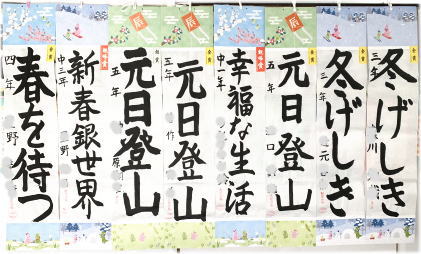 金賞
冬げしき
三年
川
金賞
冬げしき
三年
元
辰
金賞
元日登山
五年
口
幸福な生活
中一年
辰
金賞
元日登山
五年
作
辰
元日登山
五年
原
新春銀世界
中三年
野
金賞
春を待つ
四年
野